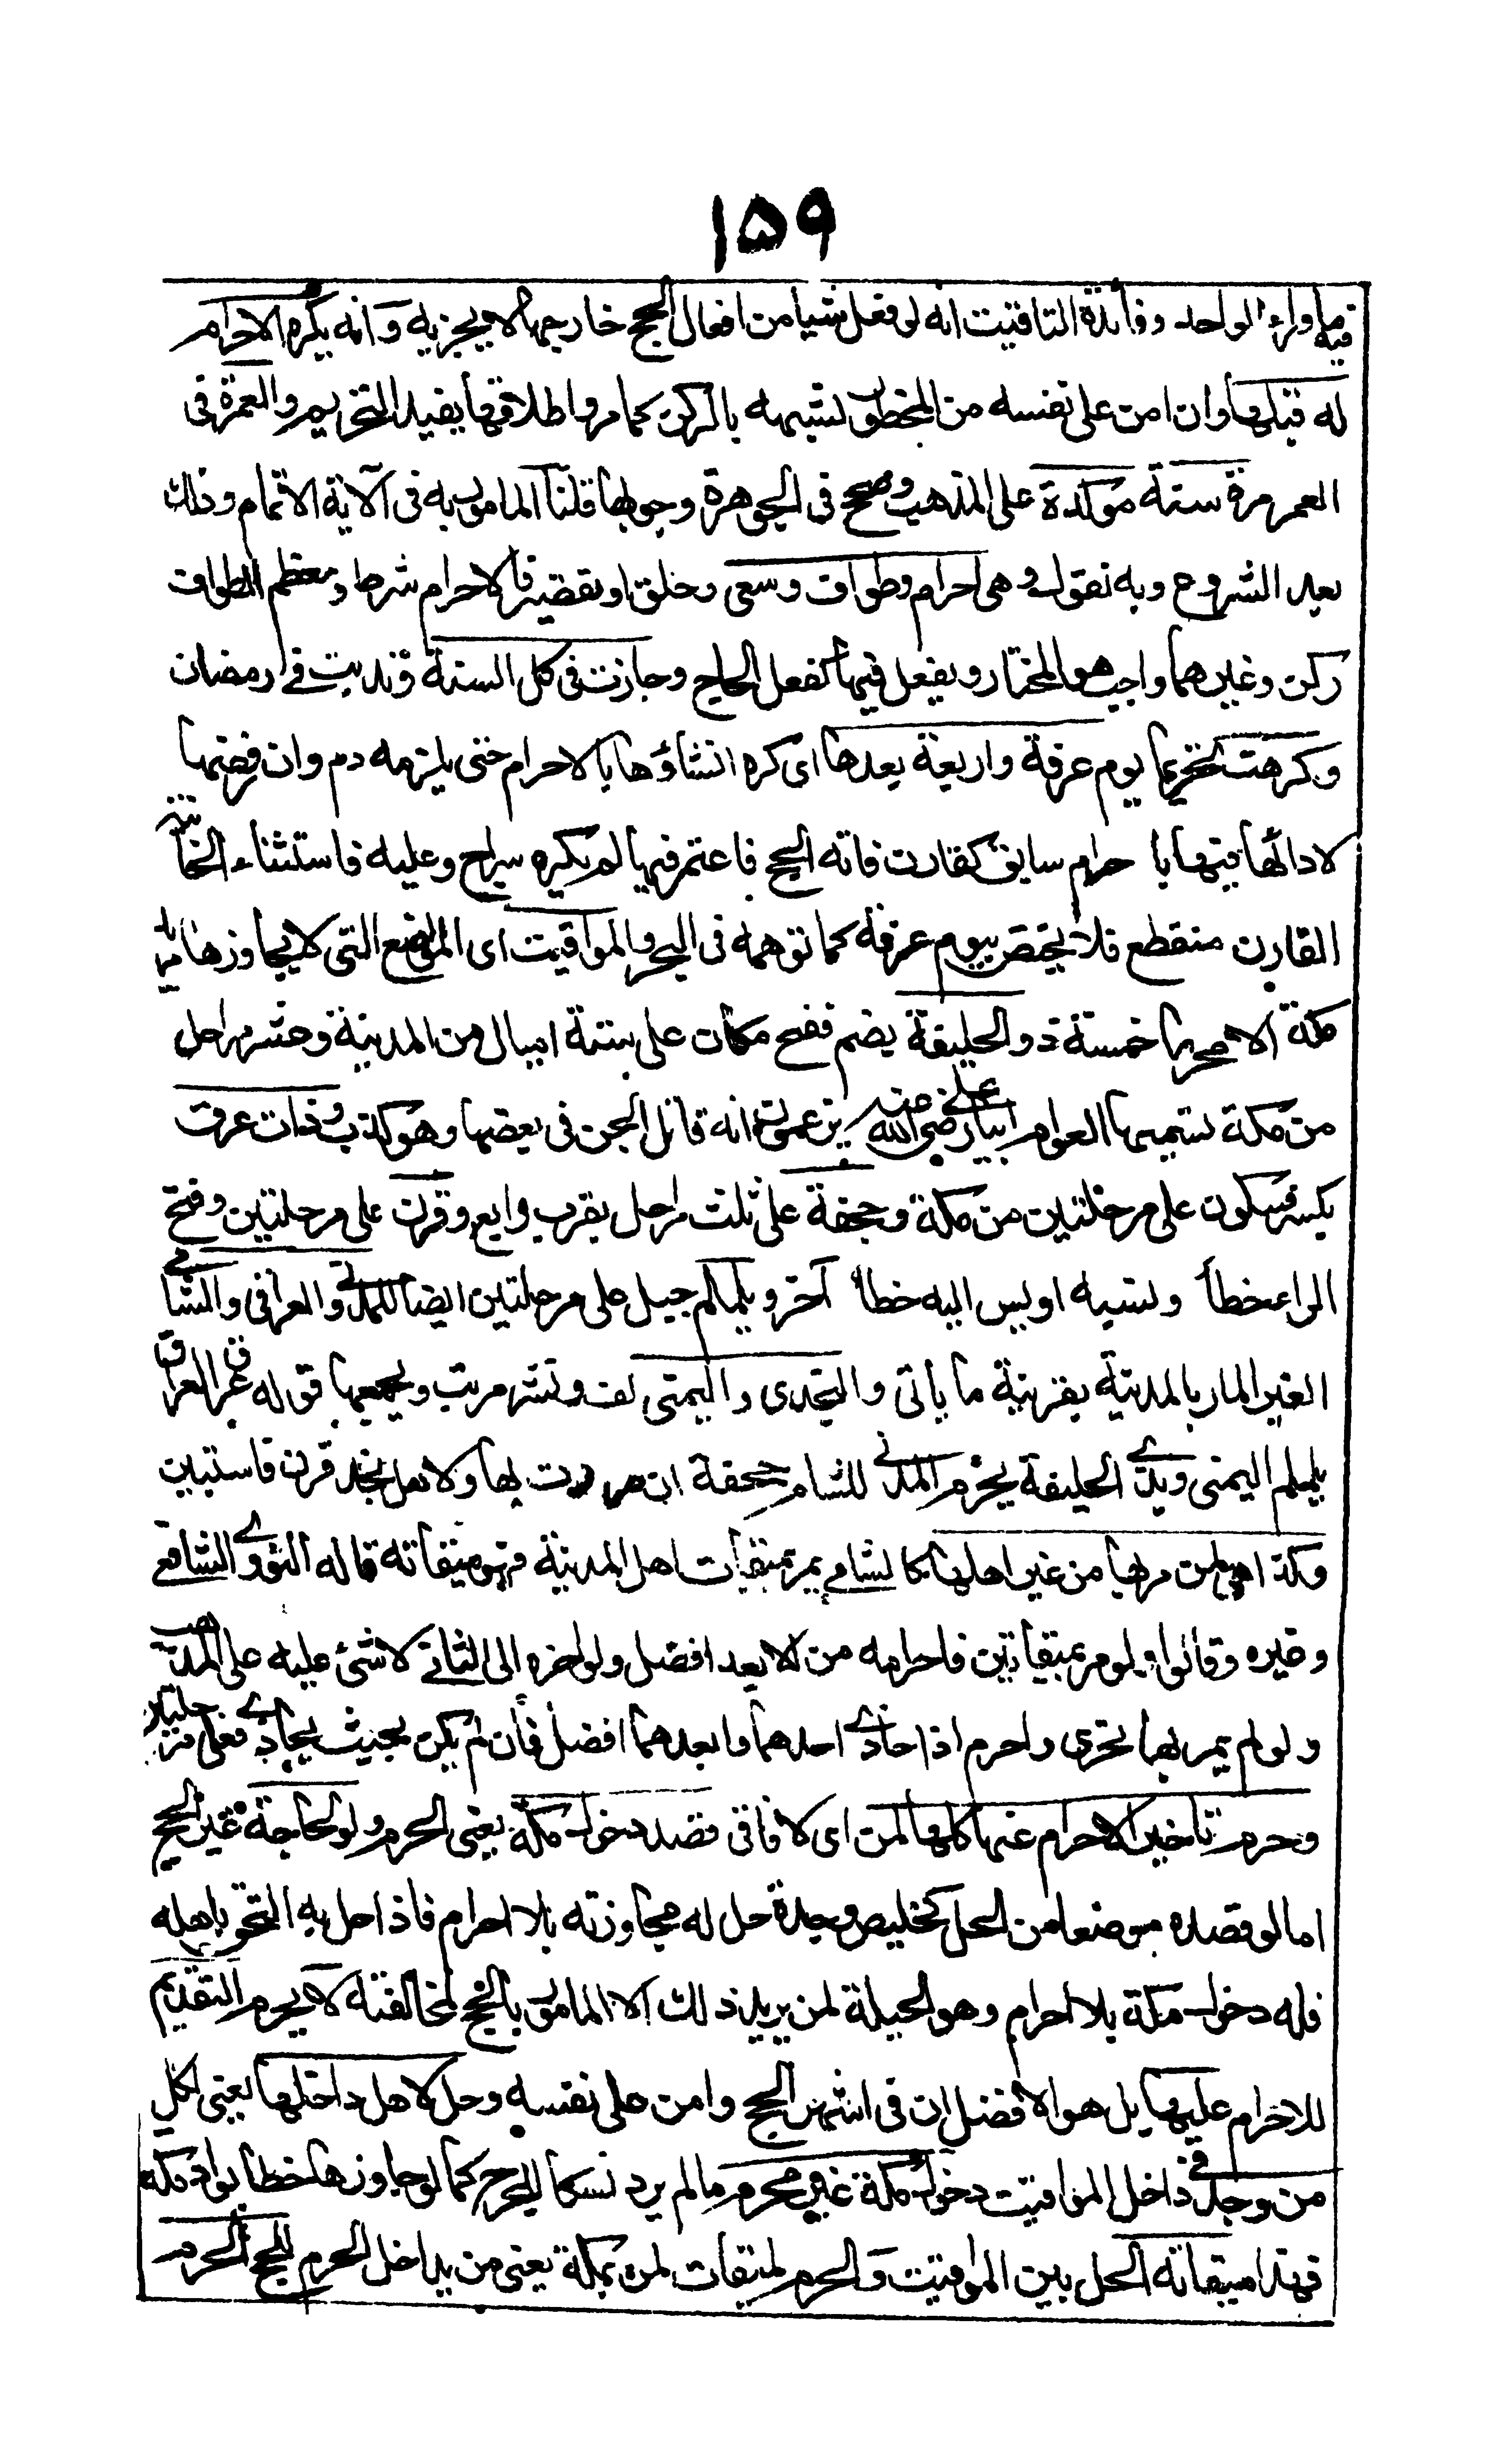 ۱۵۹
فيما وراء الواحد وفائدة التاقيت انه لو فعل شيأ من افعال الحج خارجها لا يجزيه وَانه يكره الاحرام
له قبلها وان امن على نفسه من المحظور لشبهه بالركن كما مر واطلاقها يفيد التحريم والعمرة فى
العمر مرة سنة مؤكدة على المذهب وصحح فى الجوهرة وجوبها قلنا المامور به فى الآية الاتمام وذلك
بعد الشروع وبه نقول وهى احرام وطواف وسعى وحلق او تقصير فالاحرام شرط ومعظم الطواف
ركن وغيرهما واجب هو المختار ويفعل فيها كفعل الحاج وجازت فى كل السنة وندبت فى رمضان
وكرهت تحريما يوم عرفة واربعة بعدها اى كره انشاؤها بالاحرام حتى يلزمه دم وان رفضها
لا دائها فيها با حرام سابق كقارن فاته الحج فاعتمر فيها لم يكره سراج وعليه فاستثناء الخانية
القارن منقطع فلا يختص بيوم عرفة كما توهمه فى البحر والمواقيت اى المواضع التى لا يجاوزها مريد
مكة الا محرما خمسة ذو الحليفة بضم ففتح مكان على ستة اميال من المدينة وعشر مراحل
من مكة تسميها العوام ابيار على رضى الله عنه يزعمون انه قاتل الجن فى بعضها وهو كذب وذات عرق
بكسر فسكون على مرحلتين من مكة وجحفة على ثلث مراحل بقرب رابغ وقرن على مرحلتين وفتح
الراء خطأ ونسبة اويس اليه خطأ آخر ويلملم جبل على مرحلتين ايضا للمدنى والعراقى والشامى
الغير المار بالمدينة بقرينة ما ياتى والنجدى واليمنى لف ونشر مرتب ويجمعها قوله عرق العراق
يلملم اليمنى وبذى الحليفة يحرم المدنى للشام جحفة ان مررت بها ولاهل نجد قرن فاستبين
وكذا هى لمن مر بها من غير اهلها كالشامى يمر بميقات اهل المدينة فهو ميقاته قاله النووى الشافعى
وغيره وقالوا ولو مر بميقاتين فاحرامه من الابعد افضل ولو اخره الى الثانى لا شئ عليه على المذهب
ولو لم يمر بها تحرى واحرم اذا حاذى احدهما وابعدهما افضل فان لم يكن بحيث يحاذى فعلى مرحلتين
وحرم تاخير الاحرام عنها كلها لمن اى لآفاقى قصد دخول مكة يعنى الحرم ولو لحاجة غير الحج
اما لو قصد موضعا من الحل كخليص وجدة حل له مجاوزته بلا احرام فاذا حل به التحق باهله
فله دخول مكة بلا احرام وهو الحيلة لمن يريد ذلك الا المامور بالحج لمخالفته لا يحرم التقديم
للاحرام عليها بل هو الافضل ان فى اشهر الحج وامن على نفسه وحل لاهل داخلها يعنى لكل
من وجد فى داخل المواقيت دخول مكة غير محرم ما لم يرد نسكا للحرج كما لو جاوزها حطابوا مكة
فهذا ميقاته الحل بين المواقيت وَالحرم لميقات لمن بمكة يعنى من بداخل الحرم للحج الحرم